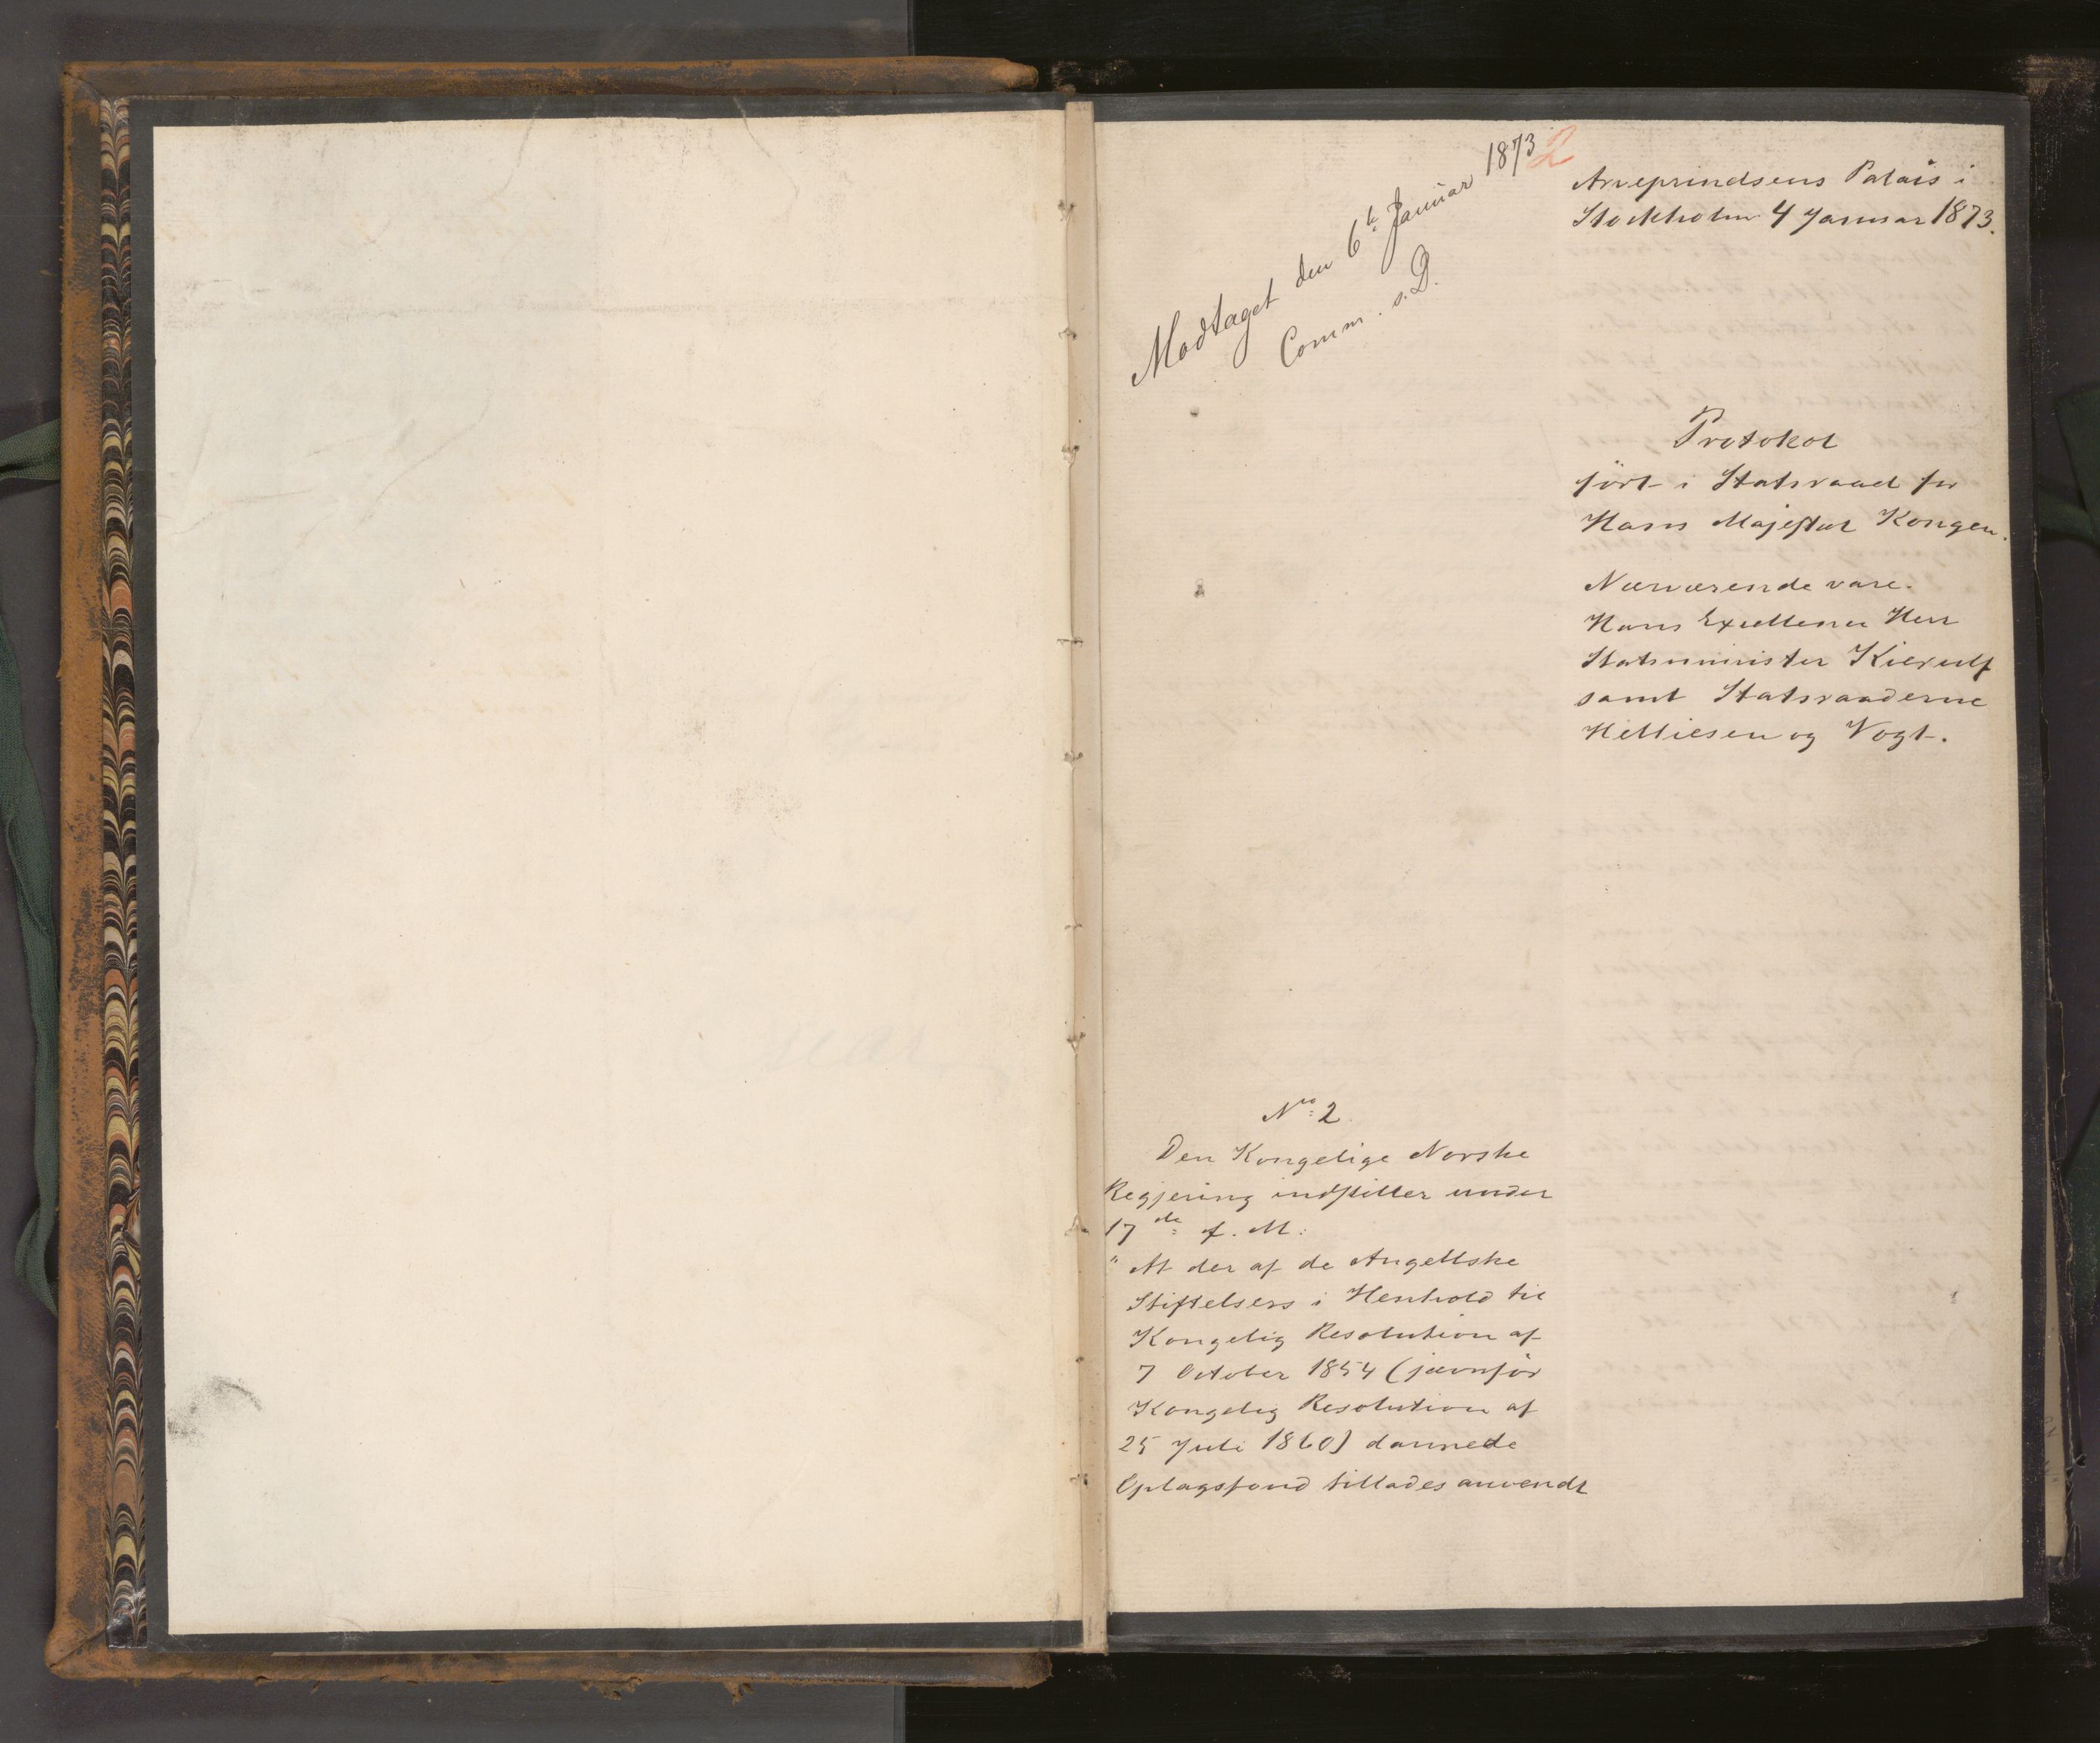 Modtaget den 6te Januar 1873
Comm. s. D.
2
Arveprindsens Palais i
Stockholm 4 Januar 1873.
Protokol
ført i Statsraad for
Hans Majestæt Kongen.
Nærværende vare.
Hans Excellence Herr
Statsminister Kierulf
samt Statsraaderne
Helliesen og Vogt.
No: 2
Den Kongelige Norske
Regjering indstiller under
17de f. M:
"At der af de Angellske
Stiftelsers i Henhold til
Kongelig Resolution af
7 October 1854 (jævnfør
Kongelig Resolution af
25 Juli 1860) dannede
Oplagsfond tillades anvendt